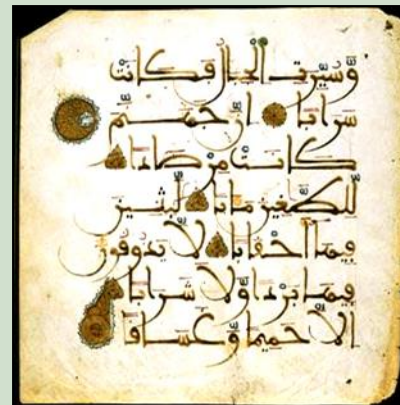 وَّسُيِّرَتِ الْجِبَالُ فَكَانَتْ
سَرَابًا إِنَّ جَهَنَّمَ
كَانَتْ مِرْصَادًا
لِّلطَّٰغِينَ مَـَٔابًا لَّٰبِثِينَ
فِيهَا أَحْقَابًا لَّا يَذُوقُونَ
فِيهَا بَرْدًا وَلَا شَرَابًا
إِلَّا حَمِيمًا وَغَسَّاقًا